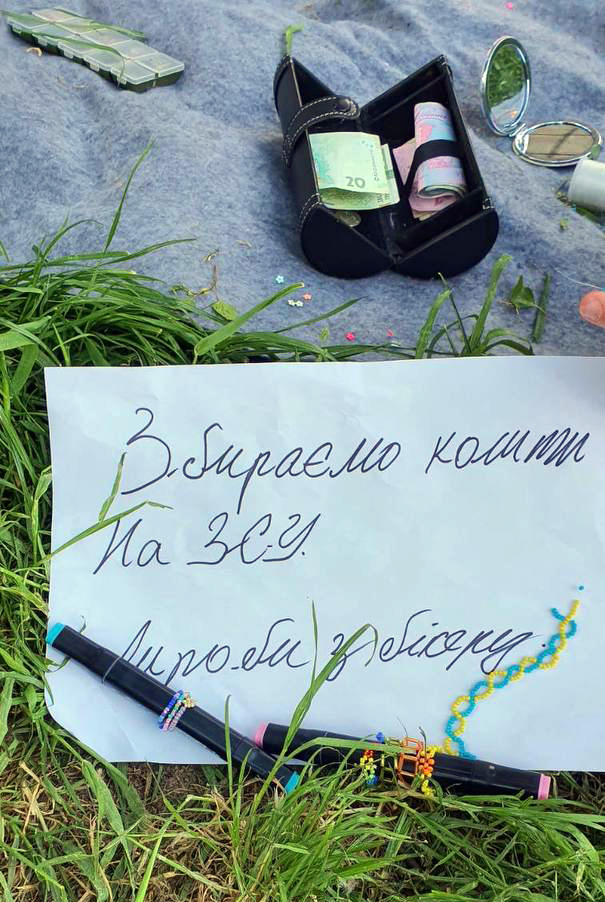 20
Збираємо кошти
На ЗСУ.
Вироби з бісеру.